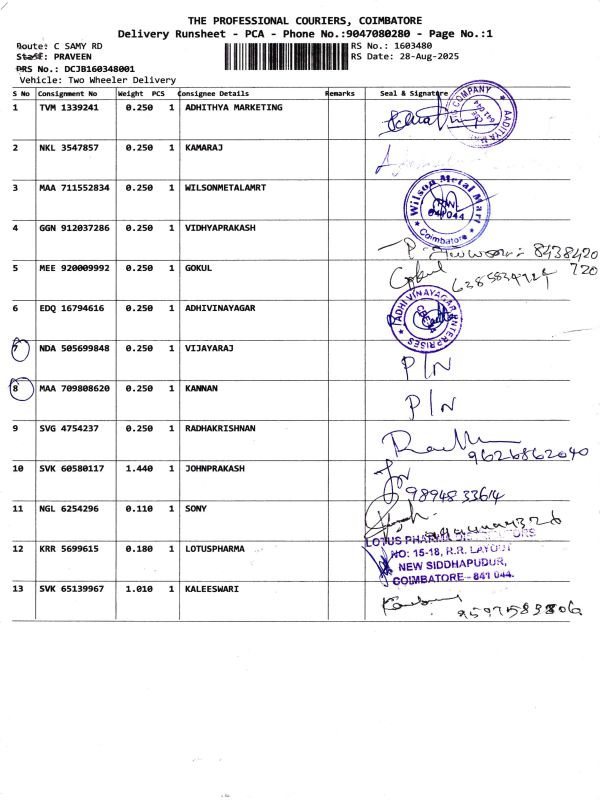 THE PROFESSIONAL COURIERS, COIMBATORE
Delivery Runsheet - PCA - Phone No.:9047080280 - Page No.:1
Route: C SAMY RD RS No.: 1603480
Staff: PRAVEEN RS Date: 28-Aug-2025
DRS No.: DCJB160348001
Vehicle: Two Wheeler Delivery
S No Consignment No Weight PCS Consignee Details Remarks Seal & Signature
1 TVM 1339241 0.250 1 ADHITHYA MARKETING
2 NKL 3547857 0.250 1 KAMARAJ
3 MAA 711552834 0.250 1 WILSONMETALAMRT Wilson Metal Mart Coimbatore
4 GGN 912037286 0.250 1 VIDHYAPRAKASH 8438420
720
5 MEE 920009992 0.250 1 GOKUL Gokul
6 EDQ 16794616 0.250 1 ADHIVINAYAGAR AADHIVINAYAGAR ENTERPRISES
7 NDA 505699848 0.250 1 VIJAYARAJ P/N
8 MAA 709808620 0.250 1 KANNAN P/N
9 SVG 4754237 0.250 1 RADHAKRISHNAN 9626862040
10 SVK 60580117 1.440 1 JOHNPRAKASH 9894833614
11 NGL 6254296 0.110 1 SONY
12 KRR 5699615 0.180 1 LOTUSPHARMA LOTUS PHARMA DISTRIBUTORS
NO: 15-18, R.R. LAYOUT
NEW SIDDHAPUDUR,
COIMBATORE - 641 044.
13 SVK 65139967 1.010 1 KALEESWARI